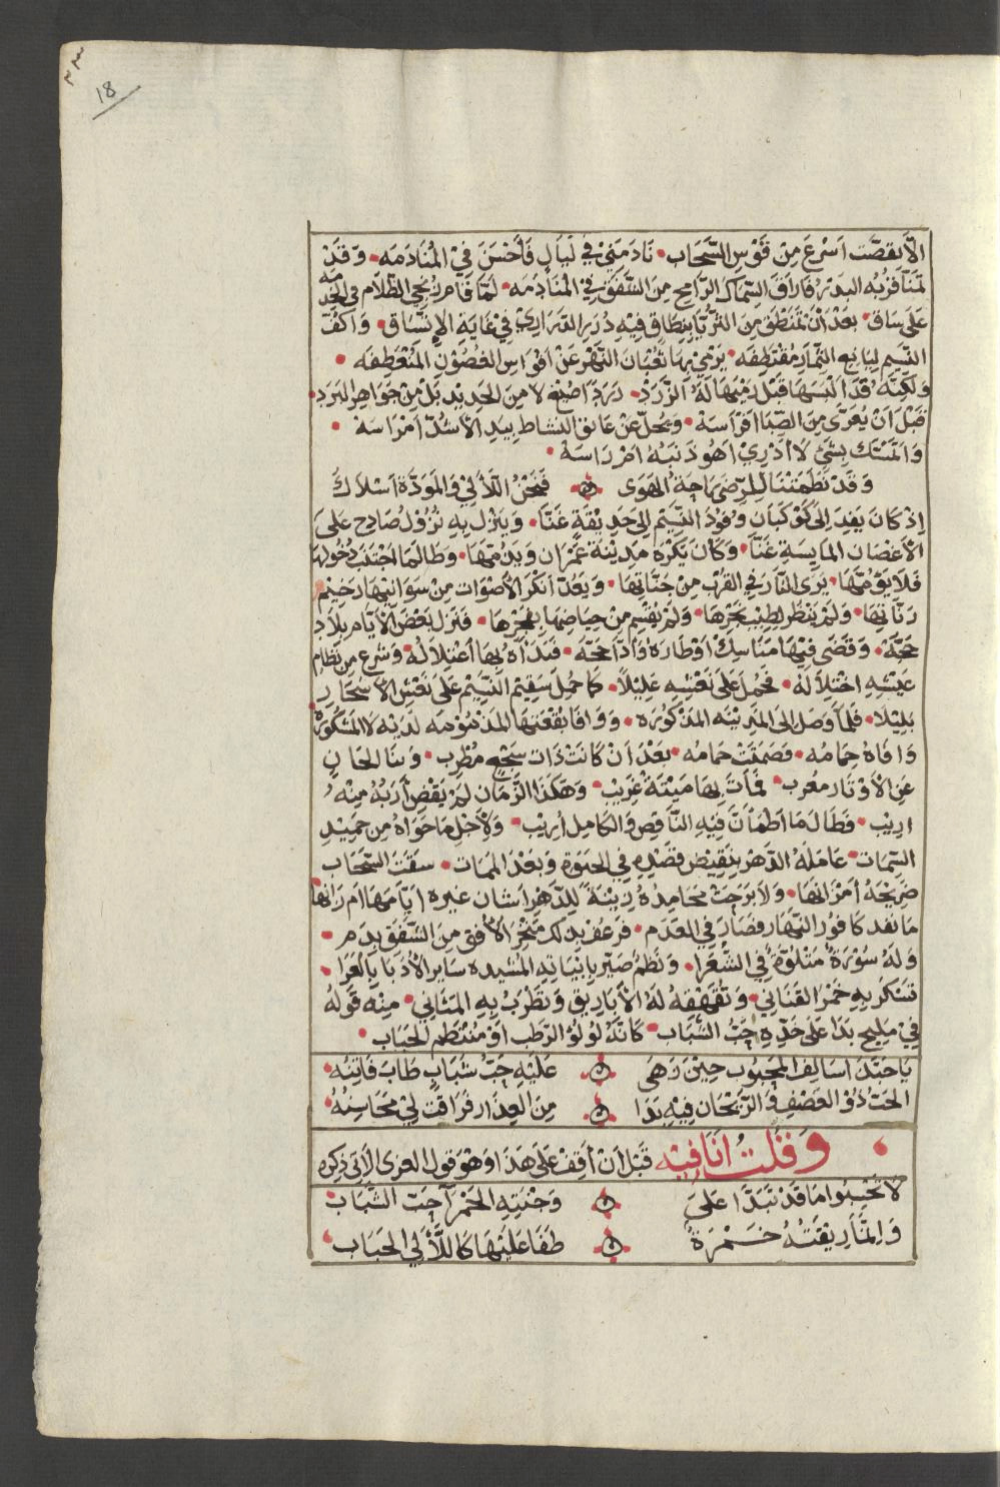 18
الا نقضت اسرع من قوس السحاب • نادمني في ليال فأحسن في المنادمه • وقد
تنافر به البدر فارق السماك الرامح من الشفق في المنادمه • لما قام يزجي الظلام في الخدمه
على ساق • بعد ان تمنطق من الثريا بنطاق فيه درر الدراري في غاية الاتساق • واكف
النسيم ليانع الثمار مقتطفه • يرمي بها ثعبان النهر عن اقواس الغصون المنعطفه •
ولكنه قد البسها قبل رميها له الزرد • زردا صيغ لا من الحديد بل من جواهر البرد •
قبل ان يعرى من الصبا افراسه • ويحل عن عاتق النشاط بيد الاشد امراسه •
والتمسك بشئ لا ادري اهو ذنبه ام راسه •
وقد نظمتنا للرضى راحة الهوى فنحن اللآلي والمودة اسلاك
اذ كان يفد الى كوكبان وفود النسيم الى حديقة غنا • وينزل به نزول صادح على
الاغصان المايسة غنا • وكان يكره مدينة عمران ويذمها • وطالما اجتنب دخولها
فلا يؤمها • يرى النار في القرب من جناتها • ويعد انكر الاصوات من سوانيها رخيم
رناتها • ولم ينظر لطيب نجرها • ولم يقسم من حياضها بفجرها • فنزل بعض الايام بلاد
حجه • وقضى فيها مناسك اوطاره وادا حجه • فبدا له بها اعتلاله • وشرع من نظام
عيشه اختلاله • فحمل على نعشه عليلا • كما حمل سقيم النسيم على نعش الاسحار
بليلا • فلما وصل الى المدينه المذكوره • ووافا بقعتها المذمومه لديه لا المشكوره
وافاه حمامه • فصمتت حمامه • بعد ان كانت ذات سجع مطرب • وبنا الحان
عن الاوتار معرب • فمات بها ميتة غريب • وهكذا الزمان لم يقض اربه منه
اريب • فطال ما اطمأن فيه الناقص والكامل اريب • ولاجل ما حواه من حميد
السمات • عامله الدهر بنقيض قصده في الحيوة وبعد الممات • سقت السحاب
ضريحه امزانها • ولا برحت محامده زينة للدهر اشان غيره ايامها ام زانها
ما نفد كافور النهار فصار في العدم • فزعفر بدلك منخر الافق من الشفق بدم •
وله سورة متلوة في الشعرا • ونظم صير بابياته المشيده ساير الادبا بالعرا •
تسكر به خمر القناني • وتقهقه له الاباريق وتطرب به المثاني • منه قوله
في مليح بدا على خده حب الشباب • كانه لولو الرطب او منتظم الحباب •
يا حبذا سالف المحبوب حين زهى عليه حب شباب طاب فاتنه •
الحب ذو العصف والريحان فيه بدا من العذار فراقت لي محاسنه •
وقلت انا فيه قبل ان اقف على هذا وهو قول العزى الاتي ذكره
لا تحسبوا ما قد تبدا على وجنته الحمرا حب الشباب •
وانما ريقته خمرة طفا عليها كاللآلي الحباب •